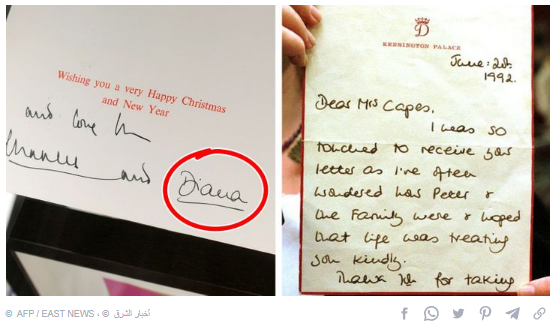 Wishing you a very Happy Christmas
and New Year
and love from
Charles and Diana
D
KENSINGTON PALACE
June:
1992.
Dear Mrs Capes.
I was so
touched to receive your
letter as I've often
wondered how Peter &
the Family were & hoped
that life was treating
you kindly.
Thank you for taking
© AFP / EAST NEWS ، © أخبار الشرق